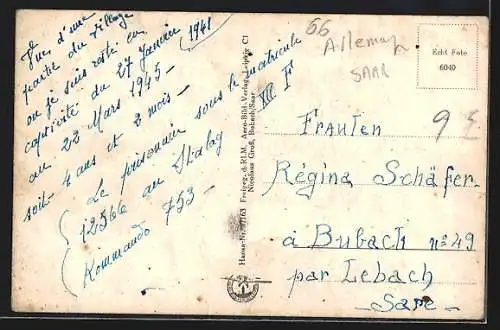 Vue d'une
partie du village
où je suis resté en
captivité du 27 Janvier 1941
au 22 Mars 1945 -
soit 4 ans et 2 mois -
Le prisonnier sous le matricule
12566 au Stalag XII F
Kommando 753 -
Hansa-Nr. 97163 Freigeg. d. RLM. Aero-Bild-Verlag, Leipzig C1
Nicolaus Groß, Bubach/Saar
66
Allemag
SAAR
Echt Foto
6040
9€
Fraulen
Régina Schäfer-
à Bubach nº 49
par Lebach
- Sare -